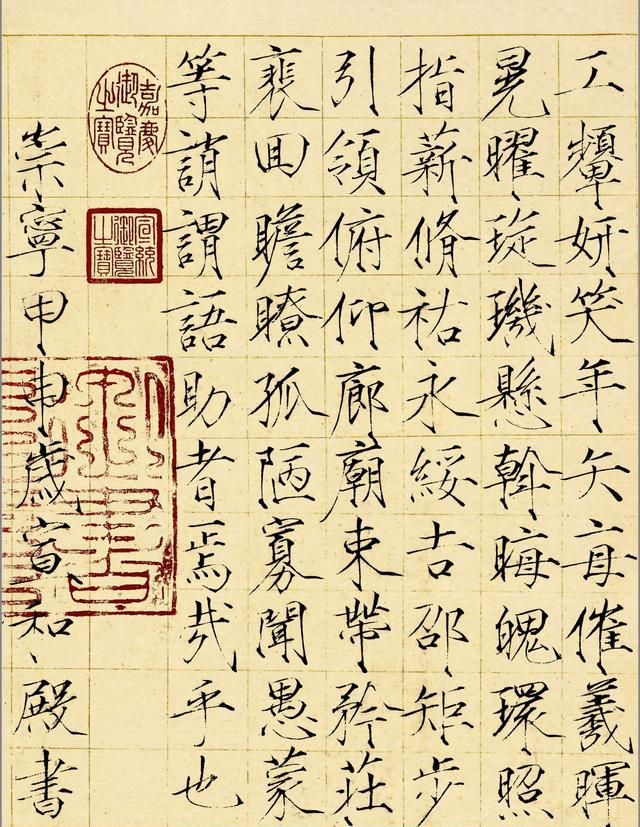 工顰妍笑年矢每催羲暉
晃曜琁璣懸斡晦魄環照
指薪脩祐永綏吉邵矩步
引領俯仰廊廟束帶矜莊
裵回瞻瞭孤陋寡聞愚蒙
等誚謂語助者焉哉乎也
嘉慶御覽之寶
宣統御覽之寶
崇寧甲申歲宣和殿書